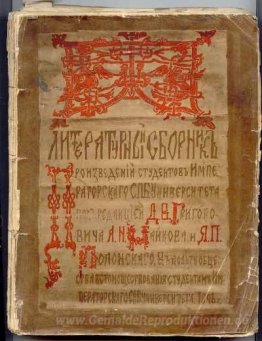 ЛИТЕРАТУРНЫЙ СБОРНИКЪ
ПРОИЗВЕДЕНІЙ СТУДЕНТОВЪ ИМПЕ
РАТОРСКАГО СПБ УНИВЕРСИТЕТА
ПОДЪ РЕДАКЦІЕЙ Д.В. ГРИГОРО
ВИЧА А.Н. МАЙКОВА И Я.П.
ПОЛОНСКАГО.
ВСПОМОЩЕСТВОВАНІЯ СТУДЕНТАМЪ ИМ
ПЕРАТОРСКАГО СПБ УНИВЕРСИТЕТА
www.GemaldeReproduktionen.de